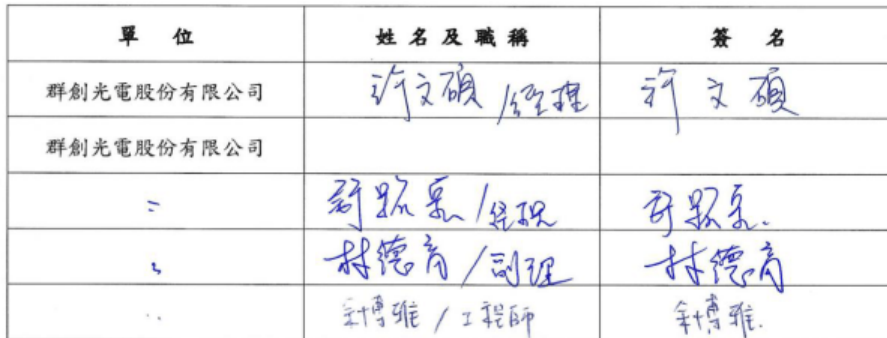 單 位 姓名及職稱 簽 名
群創光電股份有限公司 許文碩 /經理 許文碩
群創光電股份有限公司
〃 許 /經理 許
〃 林德育 /副理 林德育
〃 博雅 / 工程師 博雅